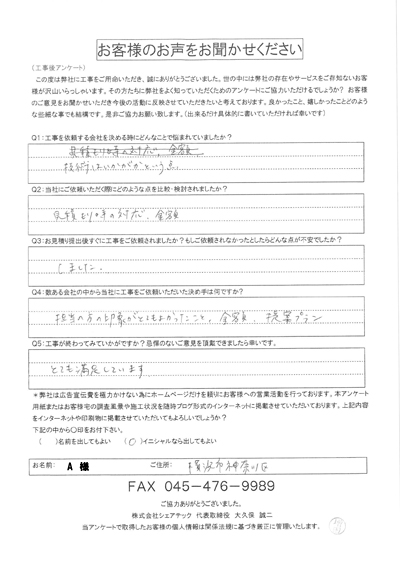 お客様のお声をお聞かせください
（工事後アンケート）
この度は弊社に工事をご用命いただき、誠にありがとうございました。世の中には弊社の存在やサービスをご存知ないお客
様が沢山いらっしゃいます。その方たちに弊社をよく知っていただくためのアンケートにご協力いただけるでしょうか？ お客様
のご意見をお聞かせいただき今後の活動に反映させていただきたいと考えております。良かったこと、嬉しかったことどのよう
な些細な事でも結構です。是非ご協力お願い致します。（出来るだけ具体的に書いていただければ幸いです）
Q1：工事を依頼する会社を決める時にどんなことで悩まれていましたか？
見積もり時の対応、金額
技術はいかがかという点
Q2：当社にご依頼いただく際にどのような点を比較・検討されましたか？
見積もり時の対応、金額
Q3：お見積り提出後すぐに工事をご依頼されましたか？もしご依頼されなかったとしたらどんな点が不安でしたか？
しました。
Q4：数ある会社の中から当社に工事をご依頼いただいた決め手は何ですか？
担当の方の印象がとてもよかったこと、金額、提案プラン
Q5：工事が終わってみていかがですか？忌憚のないご意見を頂戴できましたら幸いです。
とても満足しています
※弊社は広告宣伝費を極力かけない為にホームページだけを頼りにお客様への営業活動を行っております。本アンケート
用紙またはお客様宅の調査風景や施工状況を随時ブログ形式のインターネットに掲載させていただいております。上記内容
をインターネットや印刷物に掲載させていただいてもよろしいでしょうか？
下記の中から〇印をお付下さい。
（　）名前を出してもよい （〇）イニシャルなら出してもよい
お名前： A 様 ご住所： 横浜市神奈川区
FAX 045-476-9989
ご協力ありがとうございました。
株式会社シェアテック 代表取締役 大久保 誠二
当アンケートで取得したお客様の個人情報は関係法規に基づき厳正に管理いたします。